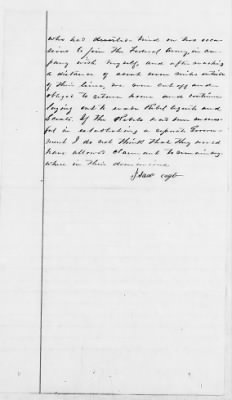 who had tried on two occa
sions to join the Federal Army, in com
pany with myself, and after making
a distance of about seven miles outside
of their lines, we were cut off and
obliged to return home and continue
laying out to evade Rebel squads and
Scouts. If the Rebels had been success
ful in establishing a separate Govern
ment I do not think that they would
have allowed claimant to remain any
where in their dominions